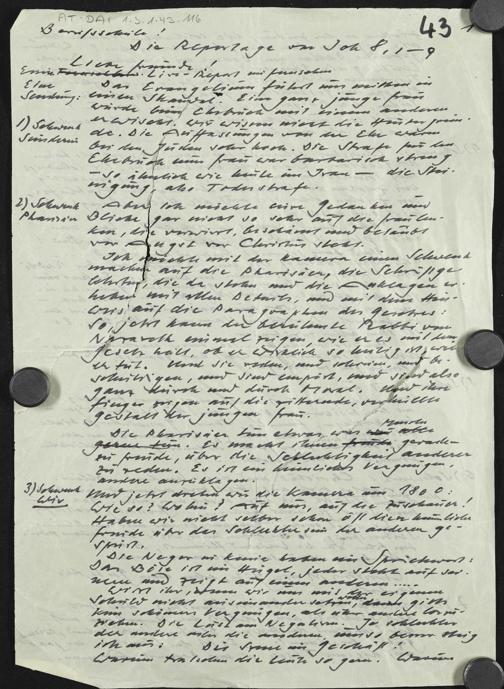 AT-DAI 1.3.1.43.116
43
Berufsschule!
Die Reportage von Joh 8, 1-9
Liebe Freunde!
Eine Live-Report im Fernsehen
Eine Sendung:
Das Evangelium führt uns mitten in
einen Skandal. Eine ganz junge Frau
wurde beim Ehebruch mit einem anderen
erwischt. Wir wissen nicht die
1) Schwenk
Sünderin
de. Die Auffassungen von der Ehe waren
bei den Juden sehr hoch. Die Strafe für den
Ehebruch einer Frau war barbarisch streng
- so ähnlich wie heute im Iran - die Stei-
nigung, also Todesstrafe.
2) Schwenk
Pharisäer
Aber ich möchte eure Gedanken und
Blicke gar nicht so sehr auf die Frau len-
ken, die verwirrt, beschämt und betäubt
vor Angst vor Christus steht.
Ich möchte mit der Kamera einen Schwenk
machen auf die Pharisäer, die Schriftge-
lehrten, die da stehn und die Anklagen er-
heben mit allen Details, und mit dem Hin-
weis auf die Paragraphen des Gesetzes:
So, jetzt kann der berühmte Rabbi von
Nazareth einmal zeigen, wie er es mit dem
Gesetz hält, ob er wirklich so heilig ist, wie
er tut. Und sie reden, und schreien und be-
schuldigen, und sind empört, und sind also
ganz Würde und Moral. Und ihre
Finger zeigen auf die zitternde, verhüllte
Gestalt der jungen Frau.
Die Pharisäer tun etwas, was
Es macht ihnen gerade-
zu Freude, über die Schlechtigkeit anderer
zu reden. Es ist ein heimliches Vergnügen,
andere anzuklagen.
3) Schwenk
Wir
Und jetzt drehn wir die Kamera um 180°:
Wieso? Wohin? Auf uns, auf die Zuschauer!
Haben wir nicht selber schon oft diese heimliche
Freude über das Schlechte in den anderen ge-
spürt.
Die Neger in Kenia haben ein Sprichwort:
Das Böse ist ein Hügel, jeder steht auf sei-
nem und zeigt auf einen anderen....
Wisst ihr, wenn wir uns mit der eigenen
Schuld nicht auseinandersetzen, dann gibts
kein schöneres Vergnügen, als über andere
Die Lust am Negativen. Je schlechter
der andere oder die anderen, umso besser
ich
Warum tratschen die Leute so gern. Warum